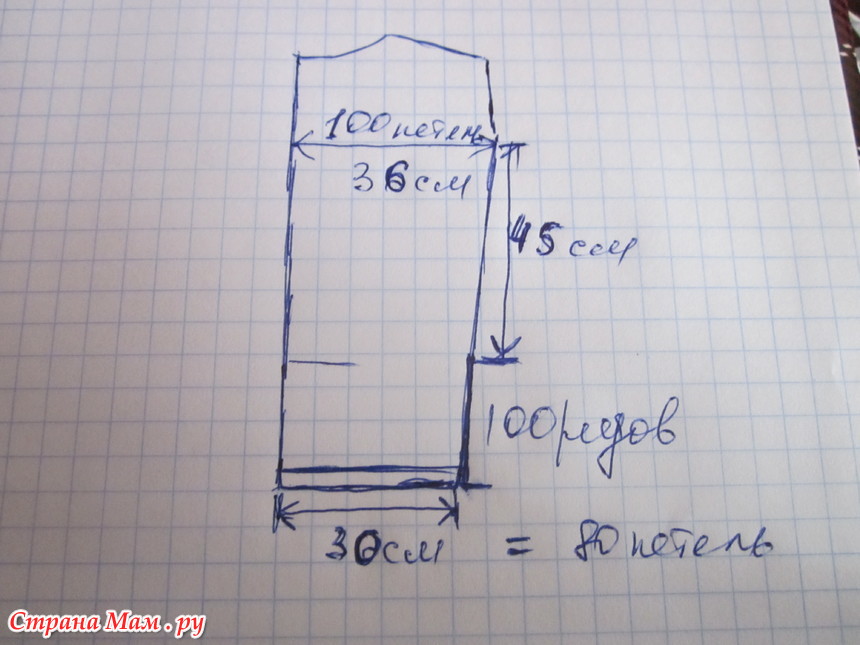 100 петель
36 см
45 см
100 рядов
30 см = 80 петель
Страна Мам . ру